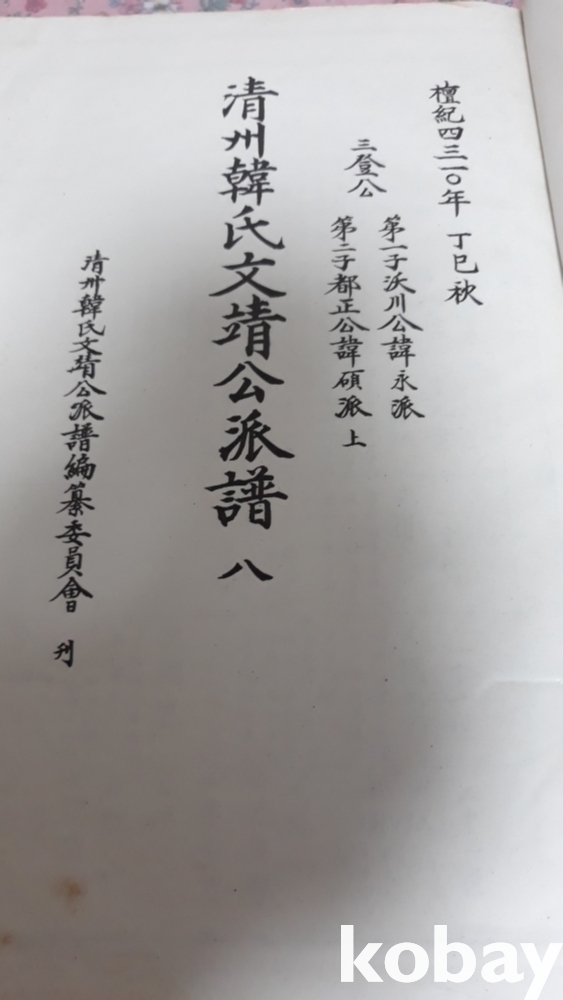 檀紀四三一〇年 丁巳秋
三登公
第一子沃川公諱永派
第二子都正公諱碩派 上
清州韓氏文靖公派譜 八
清州韓氏文靖公派譜編纂委員會 刋
kobay